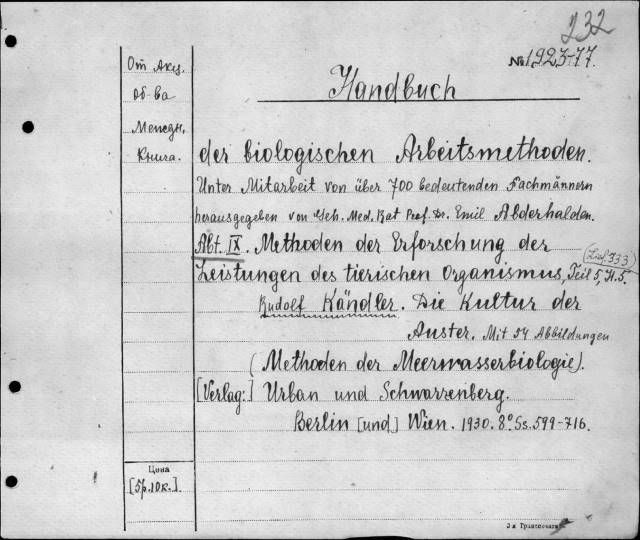 232
№ 1923-77.
От Акц.
об-ва
Handbuch
Межедн.
Книга.
der biologischen Arbeitsmethoden.
Unter Mitarbeit von über 700 bedeutenden Fachmännern
herausgegeben von Geh. Med. Rat Prof. Dr. Emil Abderhalden.
Abt. IX. Methoden der Erforschung der
(Lief. 333)
Leistungen des tierischen Organismus, Teil 5, H. 5.
Rudolf Kändler. Die Kultur der
Auster. Mit 54 Abbildungen
(Methoden der Meerwasserbiologie).
[Verlag:] Urban und Schwarzenberg.
Berlin [und] Wien. 1930. 8° Ss. 599-716.
Цена
[5р.10к.].